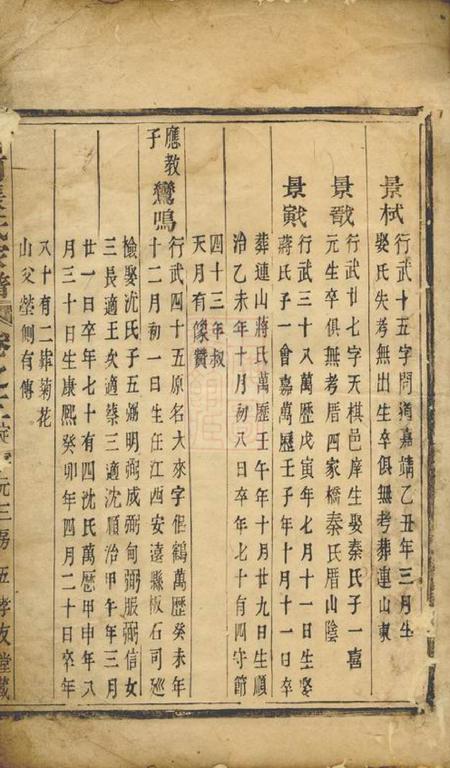 景栻 行武十五字問道嘉靖乙丑年三月生
娶氏失考無出生卒俱無考葬連山東
景戩 行武廿七字天棋邑庠生娶秦氏子一喜
元生卒俱無考厝四家橋秦氏厝山陰
景寅 行武三十八萬歷戊寅年七月十一日生娶
蔣氏子一會嘉萬歷壬子年十月十一日卒
葬連山蔣氏萬歷壬午年十月廿九日生順
治乙未年十月初八日卒年七十有四守節
四十三年叔
天月有像贊
應教子 鸞鳴 行武四十五原名大來字侶鶴萬歷癸未年
十二月初一日生任江西安遠縣板石司廵
檢娶沈氏子五弼明弼成弼甸弼服弼信女
三長適王次適蔡三適沈順治甲午年三月
廿一日卒年七十有四沈氏萬歷甲申年八
月三十日生康熙癸卯年四月二十日卒年
八十有二葬菊花
山父塋側有傳
氏家譜 卷之十 元三房 五 孝友堂藏